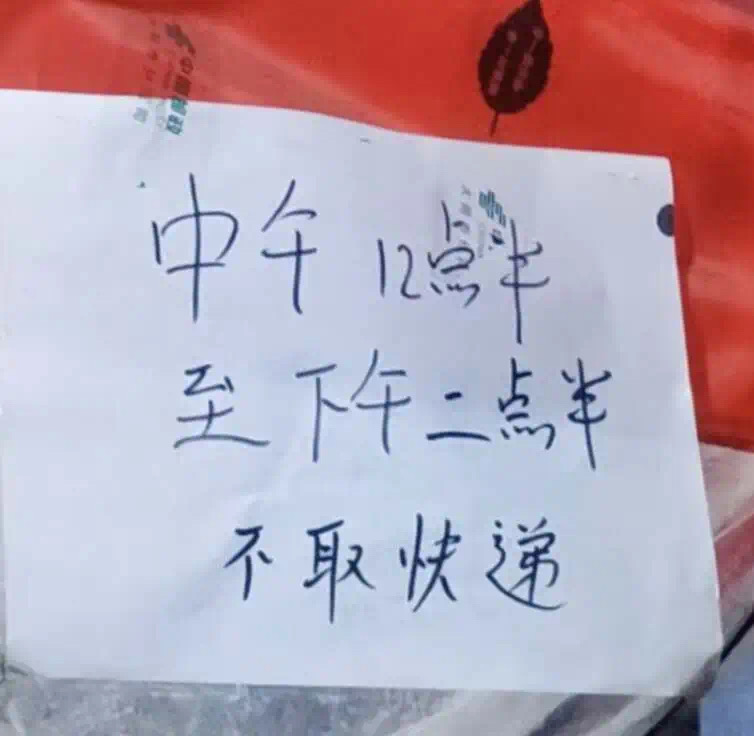 中国邮政
中午 12点半
至下午二点半
不取快递